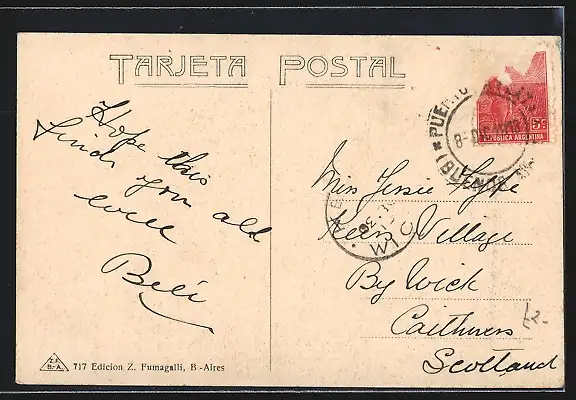 TARJETA POSTAL
Hope this
finds you all
well
Miss Jessie
Keiss Village
By Wick
Caithness
Scotland
PUERTO
BUENOS
5c
REPUBLICA ARGENTINA
Z.F.
B.-A.
717 Edicion Z. Fumagalli, B-Aires